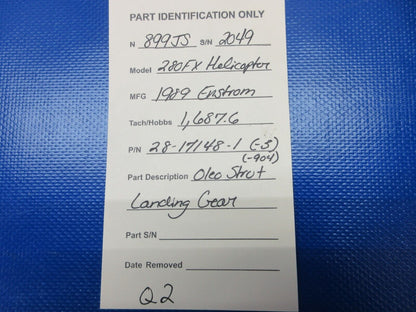 PART IDENTIFICATION ONLY
N 899JS S/N 2049
Model 280FX Helicopter
MFG 1989 Enstrom
Tach/Hobbs 1,687.6
P/N 28-17148-1 (-5)
(-904)
Part Description Oleo Strut
Landing Gear
Part S/N
Date Removed
Q2